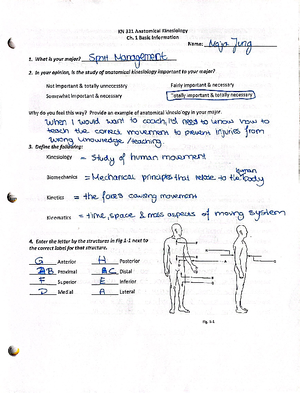 KN 321 Anatomical Kinesiology
Ch. 1 Basic Information
Name: Naja Jung
1. What is your major? Sport Management
2. In your opinion, is the study of anatomical kinesiology important to your major?
Not important & totally unnecessary Fairly important & necessary
Somewhat important & necessary Totally important & totally necessary
Why do you feel this way? Provide an example of anatomical kinesiology in your major.
When I would want to coach, I need to know how to
teach the correct movement to prevent injuries from
wrong knowledge / teaching.
3. Define the following:
Kinesiology = Study of human movement
Biomechanics = Mechanical principles that relate to the human body
Kinetics = the forces causing movement
Kinematics = time, space & mass aspects of moving system
4. Enter the letter by the structures in Fig 1-1 next to
the correct label for that structure.
G Anterior H Posterior
B Proximal C Distal
F Superior E Inferior
D Medial A Lateral
Fig. 1-1